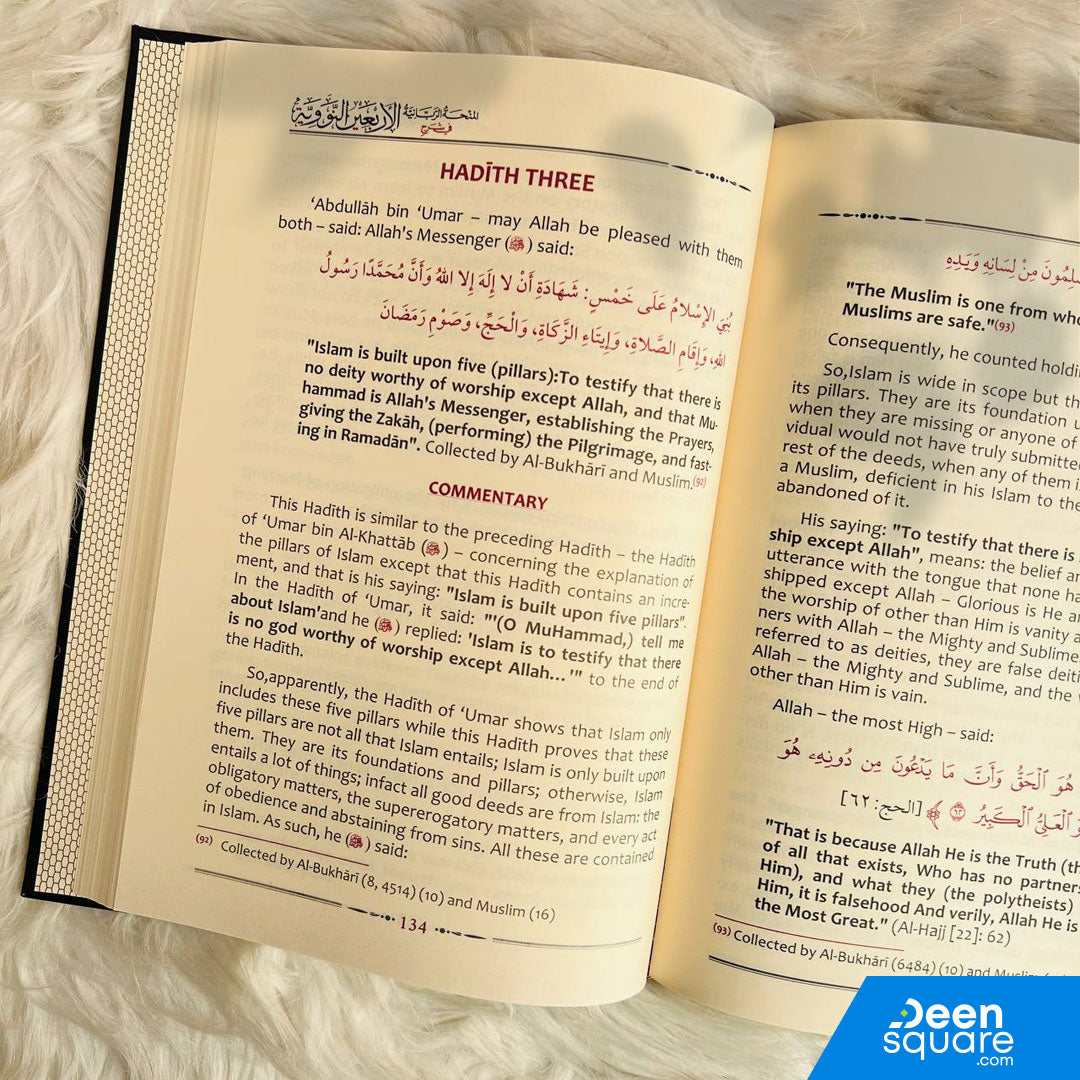 المنحة الربانية في شرح الأربعين النووية
HADĪTH THREE
‘Abdullāh bin ‘Umar – may Allah be pleased with them
both – said: Allah's Messenger (ﷺ) said:
بُنِيَ الإِسْلامُ عَلَى خَمْسٍ: شَهَادَةِ أَنْ لا إِلَهَ إِلا اللهُ وَأَنَّ مُحَمَّدًا رَسُولُ
اللهِ، وَإِقَامِ الصَّلاةِ، وَإِيتَاءِ الزَّكَاةِ، وَالْحَجِّ، وَصَوْمِ رَمَضَانَ
"Islam is built upon five (pillars):To testify that there is
no deity worthy of worship except Allah, and that Mu-
hammad is Allah's Messenger, establishing the Prayers,
giving the Zakāh, (performing) the Pilgrimage, and fast-
ing in Ramadān". Collected by Al-Bukhārī and Muslim.(92)
COMMENTARY
This Hadīth is similar to the preceding Hadīth – the Hadīth
of ‘Umar bin Al-Khattāb () – concerning the explanation of
the pillars of Islam except that this Hadīth contains an incre-
ment, and that is his saying: "Islam is built upon five pillars".
In the Hadīth of ‘Umar, it said: "'(O MuHammad,) tell me
about Islam'and he (ﷺ) replied: 'Islam is to testify that there
is no god worthy of worship except Allah...'" to the end of
the Hadīth.
So,apparently, the Hadīth of ‘Umar shows that Islam only
includes these five pillars while this Hadīth proves that these
five pillars are not all that Islam entails; Islam is only built upon
them. They are its foundations and pillars; otherwise, Islam
entails a lot of things; infact all good deeds are from Islam: the
obligatory matters, the supererogatory matters, and every act
of obedience and abstaining from sins. All these are contained
in Islam. As such, he (ﷺ) said:
(92) Collected by Al-Bukhārī (8, 4514) (10) and Muslim (16)
134
مِنْ لِسَانِهِ وَيَدِهِ
"The Muslim is one from
Muslims are safe."(93)
Consequently, he counted
So,Islam is wide in scope but
its pillars. They are its foundation
when they are missing or anyone of
vidual would not have truly submitted
rest of the deeds, when any of them
a Muslim, deficient in his Islam to the
abandoned of it.
His saying: "To testify that there is
ship except Allah", means: the belief
utterance with the tongue that none
shipped except Allah – Glorious is He
the worship of other than Him is vanity
ners with Allah – the Mighty and Sublime
referred to as deities, they are false
Allah – the Mighty and Sublime, and the
other than Him is vain.
Allah – the most High – said:
هُوَ ٱلْحَقُّ وَأَنَّ مَا يَدْعُونَ مِن دُونِهِۦ هُوَ
ٱلْعَلِيُّ ٱلْكَبِيرُ ٦٢ ﴾ [الحج: ٦٢]
"That is because Allah He is the Truth
of all that exists, Who has no
Him), and what they (the polytheists)
Him, it is falsehood And verily, Allah He is
the Most Great." (Al-Hajj [22]: 62)
(93) Collected by Al-Bukhārī (6484) (10) and
Deen
square
.com